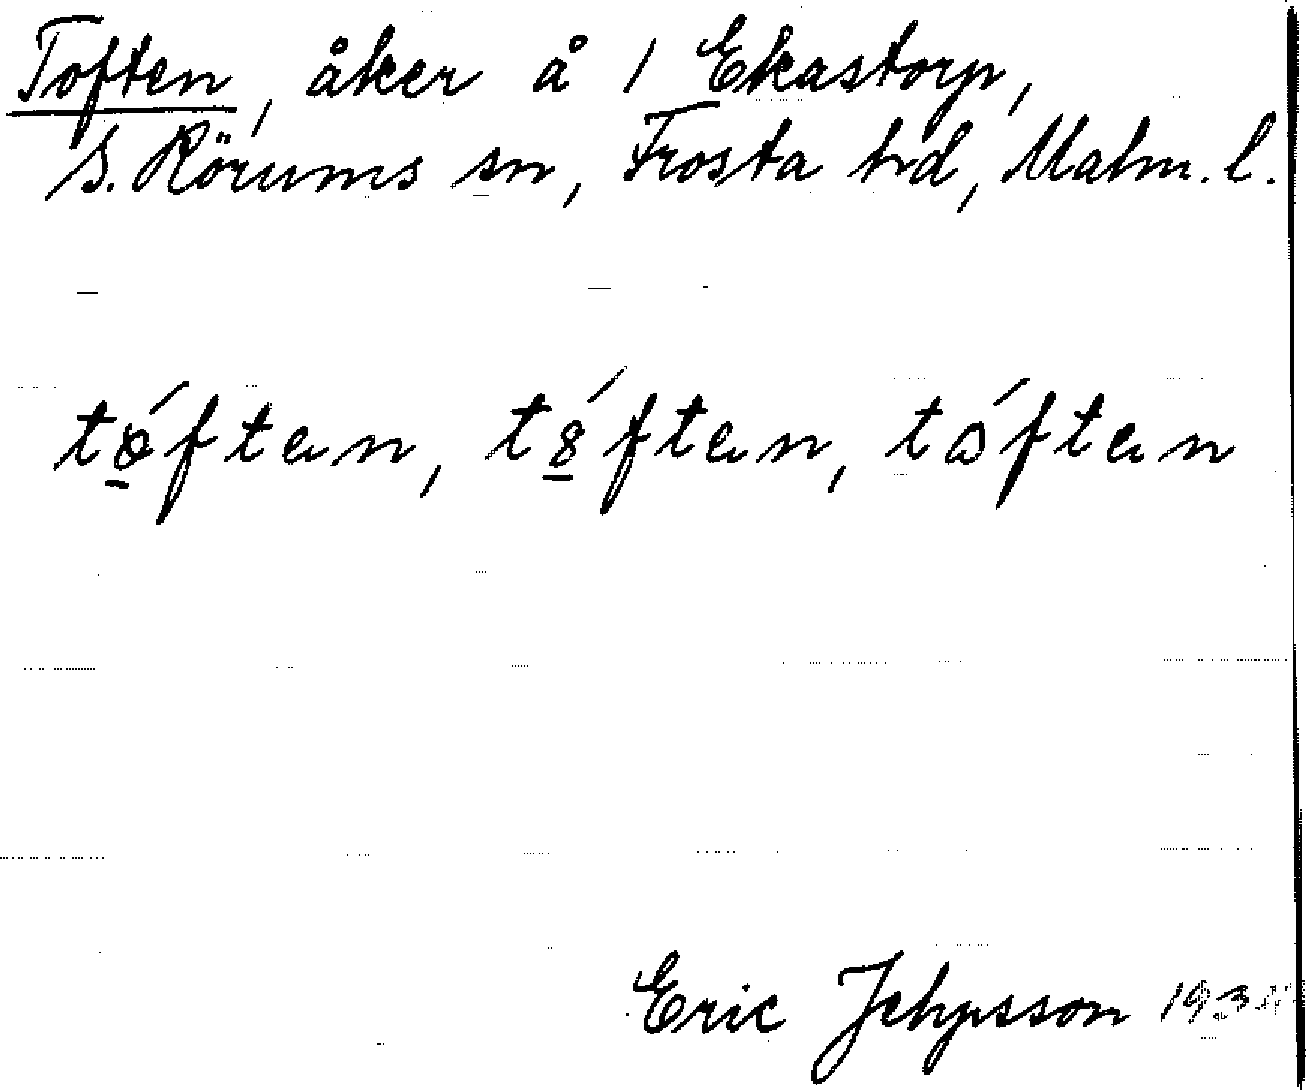 Toften, åker å 1 Ekastorp,
S. Rörums sn, Frosta hd, Malm. l.
tǫ́ften, tȣ̱́ften, tɷ́ften
Eric Jepsson 193